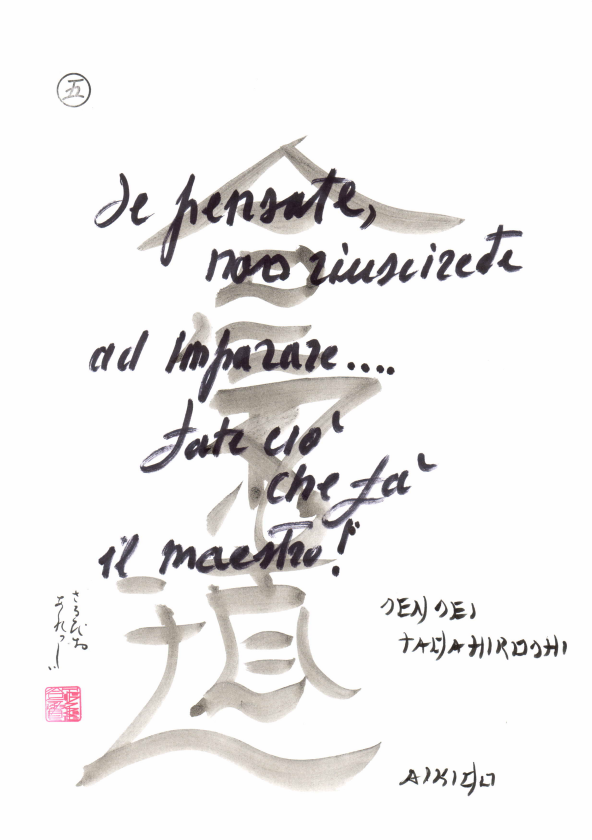 五
Se pensate,
non riuscirete
ad imparare....
fate ciò
che fà
il maestro!
合気道
SENSEI
TADA HIROSHI
AIKIDO
さるびお